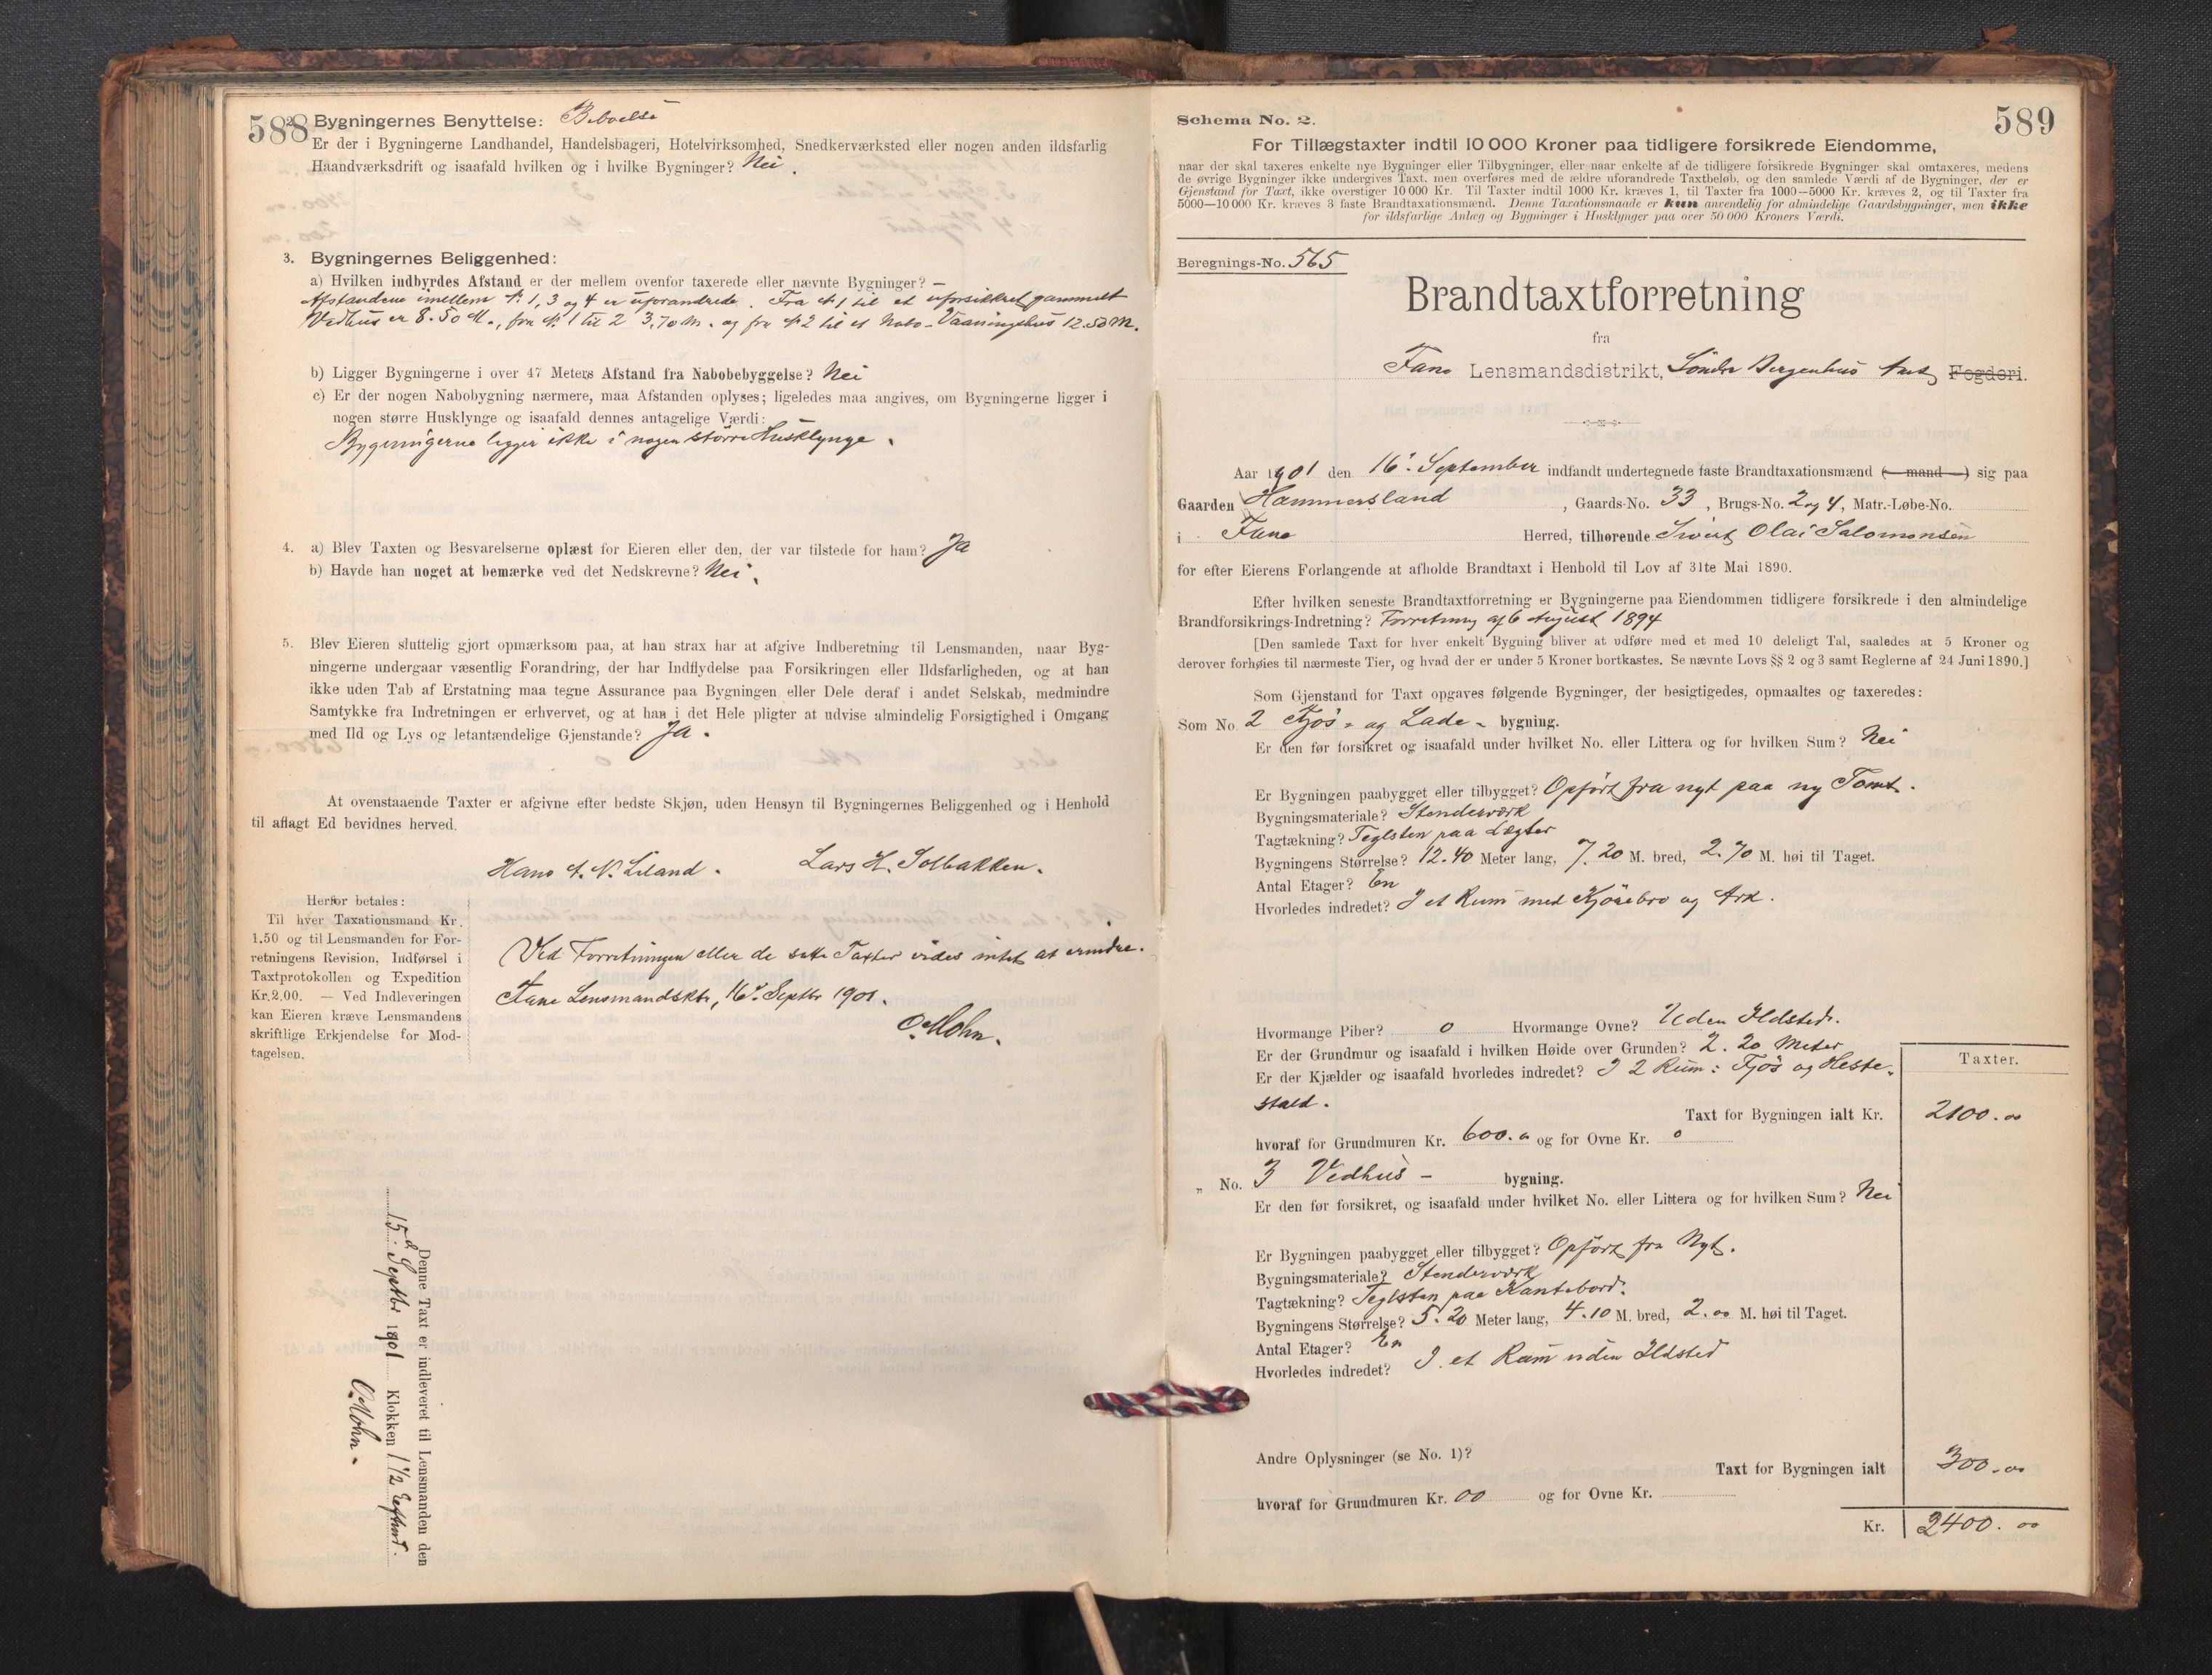 588
2. Bygningernes Benyttelse: Beboelse
Er der i Bygningerne Landhandel, Handelsbageri, Hotelvirksomhed, Snedkerværksted eller nogen anden ildsfarlig
Haandværksdrift og isaafald hvilken og i hvilke Bygninger? Nei.
3. Bygningernes Beliggenhed:
a) Hvilken indbyrdes Afstand er der mellem ovenfor taxerede eller nævnte Bygninger? –
Afstandene imellem № 1, 3 og 4 er uforandrede. Fra № 1 til et uforsikret gammelt
Vedhus er 8.50 M., fra № 1 til 2 3,70 m. og fra № 2 til et Nabo-Vaaningshus 12.50 M.
b) Ligger Bygningerne i over 47 Meters Afstand fra Nabobebyggelse? Nei
c) Er der nogen Nabobygning nærmere, maa Afstanden oplyses; ligeledes maa angives, om Bygningerne ligger i
nogen større Husklynge og isaafald dennes antagelige Værdi:
Bygningerne ligger ikke i nogen större Husklynge.
4. a) Blev Taxten og Besvarelserne oplæst for Eieren eller den, der var tilstede for ham? Ja
b) Havde han noget at bemærke ved det Nedskrevne? Nei.
5. Blev Eieren sluttelig gjort opmærksom paa, at han strax har at afgive Indberetning til Lensmanden, naar Byg-
ningerne undergaar væsentlig Forandring, der har Indflydelse paa Forsikringen eller Ildsfarligheden, og at han
ikke uden Tab af Erstatning maa tegne Assurance paa Bygningen eller Dele deraf i andet Selskab, medmindre
Samtykke fra Indretningen er erhvervet, og at han i det Hele pligter at udvise almindelig Forsigtighed i Omgang
med Ild og Lys og letantændelige Gjenstande? Ja.
At ovenstaaende Taxter er afgivne efter bedste Skjøn, uden Hensyn til Bygningernes Beliggenhed og i Henhold
til aflagt Ed bevidnes herved.
Hans A. N. Liland. Lars H. Solbakken.
Herfor betales:
Til hver Taxationsmand Kr.
1.50 og til Lensmanden for For-
retningens Revision, Indførsel i
Taxtprotokollen og Expedition
Kr. 2.00. — Ved Indleveringen
kan Eieren kræve Lensmandens
skriftlige Erkjendelse for Mod-
tagelsen.
Ved Forretningen eller de satte Taxter vides intet at erindre.
Fane Lensmandsktr, 16d Septbr 1901.
O. Mohn.
Denne Taxt er indleveret til Lensmanden den
15d Septbr 1901 Klokken 1 1/2 Efthmt.
O. Mohn.
589
Schema No. 2.
For Tillægstaxter indtil 10 000 Kroner paa tidligere forsikrede Eiendomme,
naar der skal taxeres enkelte nye Bygninger eller Tilbygninger, eller naar enkelte af de tidligere forsikrede Bygninger skal omtaxeres, medens
de øvrige Bygninger ikke undergives Taxt, men overføres med de ældre uforandrede Taxtbeløb, og den samlede Værdi af de Bygninger, der er
Gjenstand for Taxt, ikke overstiger 10 000 Kr. Til Taxter indtil 1000 Kr. kræves 1, til Taxter fra 1000—5000 Kr. kræves 2, og til Taxter fra
5000—10 000 Kr. kræves 3 faste Brandtaxationsmænd. Denne Taxationsmaade er kun anvendelig for almindelige Gaardsbygninger, men ikke
for ildsfarlige Anlæg og Bygninger i Husklynger paa over 50 000 Kroners Værdi.
Beregnings-No. 565
Brandtaxtforretning
fra
Fane Lensmandsdistrikt, Söndre Bergenhus Amt Fogderi.
Aar 1901 den 16d September indfandt undertegnede faste Brandtaxationsmænd (— mand —) sig paa
Gaarden Hammersland, Gaards-No. 33, Brugs-No. 2 og 4, Matr.-Løbe-No.
i Fane Herred, tilhørende Sivert Olai Salomonsen
for efter Eierens Forlangende at afholde Brandtaxt i Henhold til Lov af 31te Mai 1890.
Efter hvilken seneste Brandtaxtforretning er Bygningerne paa Eiendommen tidligere forsikrede i den almindelige
Brandforsikrings-Indretning? Forretning af 6 August 1894
[Den samlede Taxt for hver enkelt Bygning bliver at udføre med et med 10 deleligt Tal, saaledes at 5 Kroner og
derover forhøies til nærmeste Tier, og hvad der er under 5 Kroner bortkastes. Se nævnte Lovs §§ 2 og 3 samt Reglerne af 24 Juni 1890.]
Som Gjenstand for Taxt opgaves følgende Bygninger, der besigtigedes, opmaaltes og taxeredes:
Som No. 2 Fjös- og Lade- bygning.
Er den før forsikret og isaafald under hvilket No. eller Littera og for hvilken Sum? Nei
Er Bygningen paabygget eller tilbygget? Opfört fra nyt paa ny Tomt.
Bygningsmateriale? Stenderværk
Tagtækning? Teglsten paa Lægter
Bygningens Størrelse? 12.40 Meter lang, 7.20 M. bred, 2.70 M. høi til Taget.
Antal Etager? En
Hvorledes indredet? I et Rum med Kjörebro og Ark.
Hvormange Piber? 0 Hvormange Ovne? Uden Ildsted.
Er der Grundmur og isaafald i hvilken Høide over Grunden? 2.20 Meter
Er der Kjælder og isaafald hvorledes indredet? I 2 Rum: Fjös og Heste-
stald.
Taxter.
Taxt for Bygningen ialt Kr. 2100.00
hvoraf for Grundmuren Kr. 600.00 og for Ovne Kr. 0
„ No. 3 Vedhus- bygning.
Er den før forsikret, og isaafald under hvilket No. eller Littera og for hvilken Sum? Nei
Er Bygningen paabygget eller tilbygget? Opfört fra Nyt.
Bygningsmateriale? Stenderværk
Tagtækning? Teglsten paa Kantebord.
Bygningens Størrelse? 5.20 Meter lang, 4.10 M. bred, 2.00 M. høi til Taget.
Antal Etager? En
Hvorledes indredet? I et Rum uden Ildsted
Andre Oplysninger (se No. 1)?
Taxt for Bygningen ialt 300.00
hvoraf for Grundmuren Kr. 00 og for Ovne Kr.
Kr. 2400.00